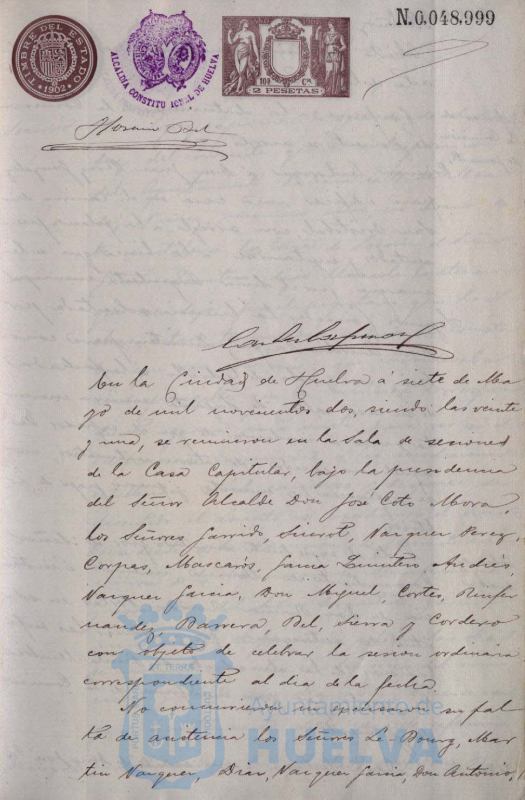 N.0.048.999
TIMBRE DEL ESTADO
1902
ALCALDÍA CONSTITUCIONAL DE HUELVA
100 Cs.
2 PESETAS
En la Ciudad de Huelva á siete de Ma-
yo de mil novecientos dos, siendo las veinte
y una, se reunieron en la Sala de sesiones
de la Casa Capitular, bajo la presidencia
del Señor Alcalde Don José Coto Mora,
los Señores Garrido, Vazquez Perez,
Corpas, Mascarós, Garcia Quintero, Andrés,
Vazquez Garcia, Don Miguel, Cortes,
Barrera, Bel, Sierra y Cordero
con objeto de celebrar la sesion ordinaria
correspondiente al dia de la fecha.
No concurrieron ni escusaron su fal-
ta de asistencia los Señores Le-Bourg, Mar-
tin Vazquez, Diaz, Vazquez Garcia, Don Antonio,
Ayuntamiento de
HUELVA